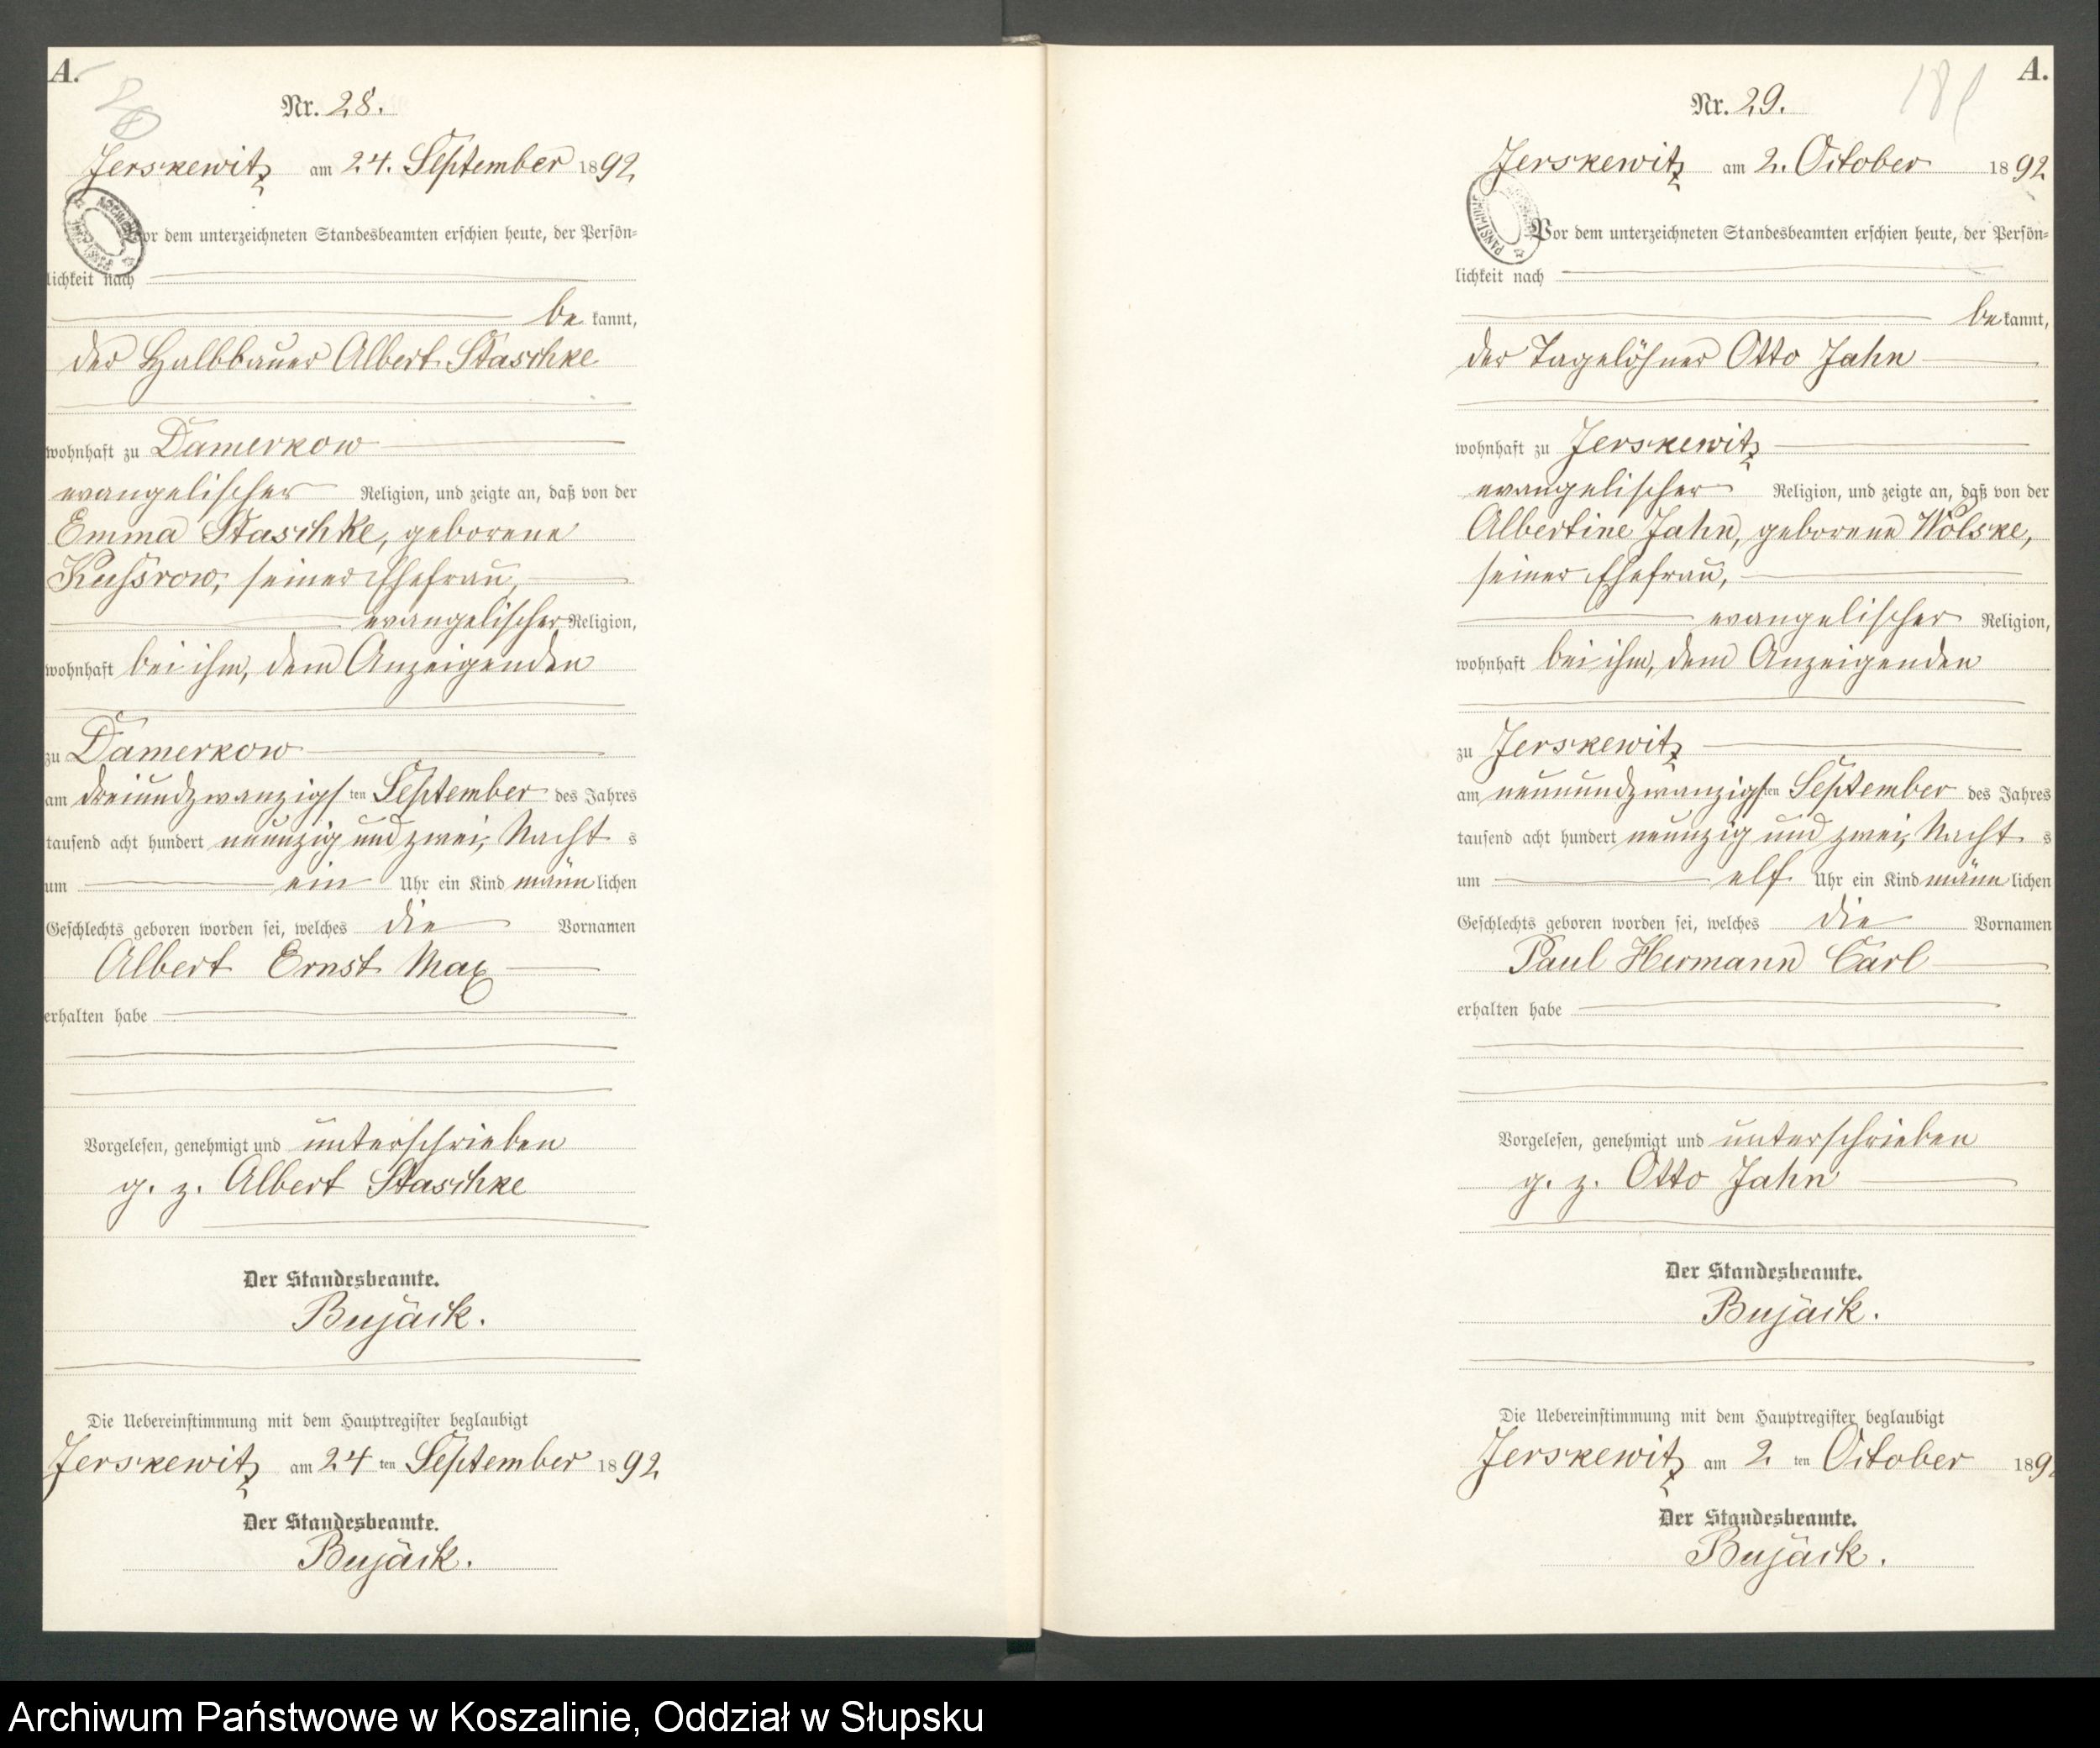 A.
Nr. 28.
Jerskewitz am 24. September 1892
Vor dem unterzeichneten Standesbeamten erschien heute, der Persön-
lichkeit nach
be kannt,
der Halbbauer Albert Staschke
wohnhaft zu Damerkow
evangelischer Religion, und zeigte an, daß von der
Emma Staschke, geborene
Kussrow, seiner Ehefrau,
evangelischer Religion,
wohnhaft bei ihm, dem Anzeigenden
zu Damerkow
am dreiundzwanzigsten September des Jahres
tausend acht hundert neunzig und zwei, Nacht s
um ein Uhr ein Kind männlichen
Geschlechts geboren worden sei, welches die Vornamen
Albert Ernst Max
erhalten habe
Vorgelesen, genehmigt und unterschrieben
g. z. Albert Staschke
Der Standesbeamte.
Bujäck.
Die Uebereinstimmung mit dem Hauptregister beglaubigt
Jerskewitz am 24 ten September 1892
Der Standesbeamte.
Bujäck.
A.
Nr. 29.
Jerskewitz am 2. October 1892
Vor dem unterzeichneten Standesbeamten erschien heute, der Persön-
lichkeit nach
be kannt,
der Tagelöhner Otto Jahn
wohnhaft zu Jerskewitz
evangelischer Religion, und zeigte an, daß von der
Albertine Jahn, geborene Wolske,
seiner Ehefrau,
evangelischer Religion,
wohnhaft bei ihm, dem Anzeigenden
zu Jerskewitz
am neunundzwanzigsten September des Jahres
tausend acht hundert neunzig und zwei, Nacht s
um elf Uhr ein Kind männlichen
Geschlechts geboren worden sei, welches die Vornamen
Paul Hermann Carl
erhalten habe
Vorgelesen, genehmigt und unterschrieben
g. z. Otto Jahn
Der Standesbeamte.
Bujäck.
Die Uebereinstimmung mit dem Hauptregister beglaubigt
Jerskewitz am 2 ten October 189
Der Standesbeamte.
Bujäck.
Archiwum Państwowe w Koszalinie, Oddział w Słupsku